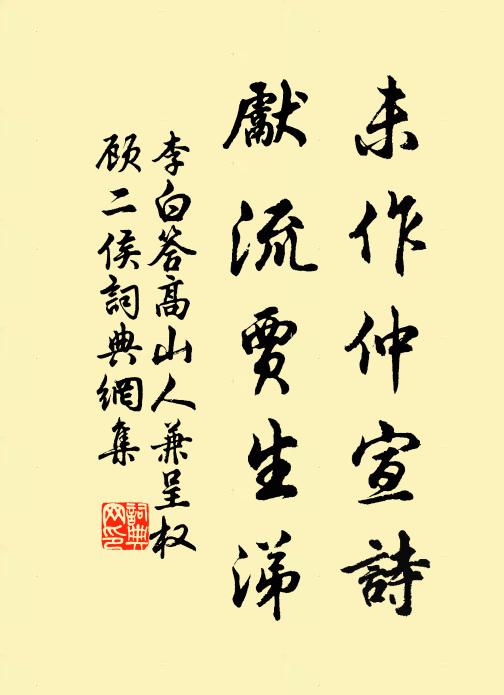 未作仲宣詩
獻流賈生涕
李白答高山人兼呈权
顾二侯詞典網集
詞典
网印